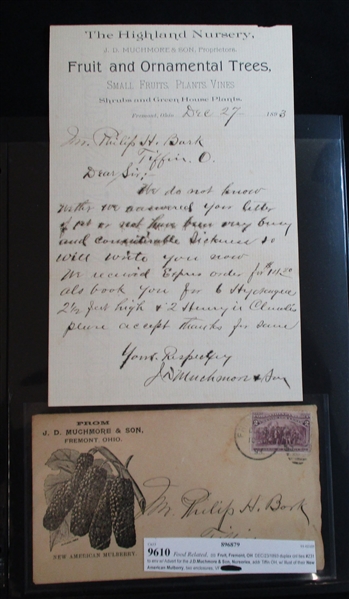 The Highland Nursery,
J. D. MUCHMORE & SON, Proprietors.
Fruit and Ornamental Trees,
SMALL FRUITS, PLANTS VINES
Shrubs and Green House Plants.
Fremont, Ohio, Dec 27 1893
Mr. Philip H. Bork
Tiffin, O.
Dear Sir;-
We do not know
wether we answered your letter
if not or not have been very busy
and considerable Sickness so
will write you now
We received Express order for
also book you for 6 Hydrangea
2½ feet high & 2 Henryii Clematis
please accept thanks for same
Yours Respectfy
J. D. Muchmore & Son
FROM
J. D. MUCHMORE & SON,
FREMONT, OHIO.
NEW AMERICAN MULBERRY.
Mr Philip H. Bork
Tiffin
9610 Food Related,